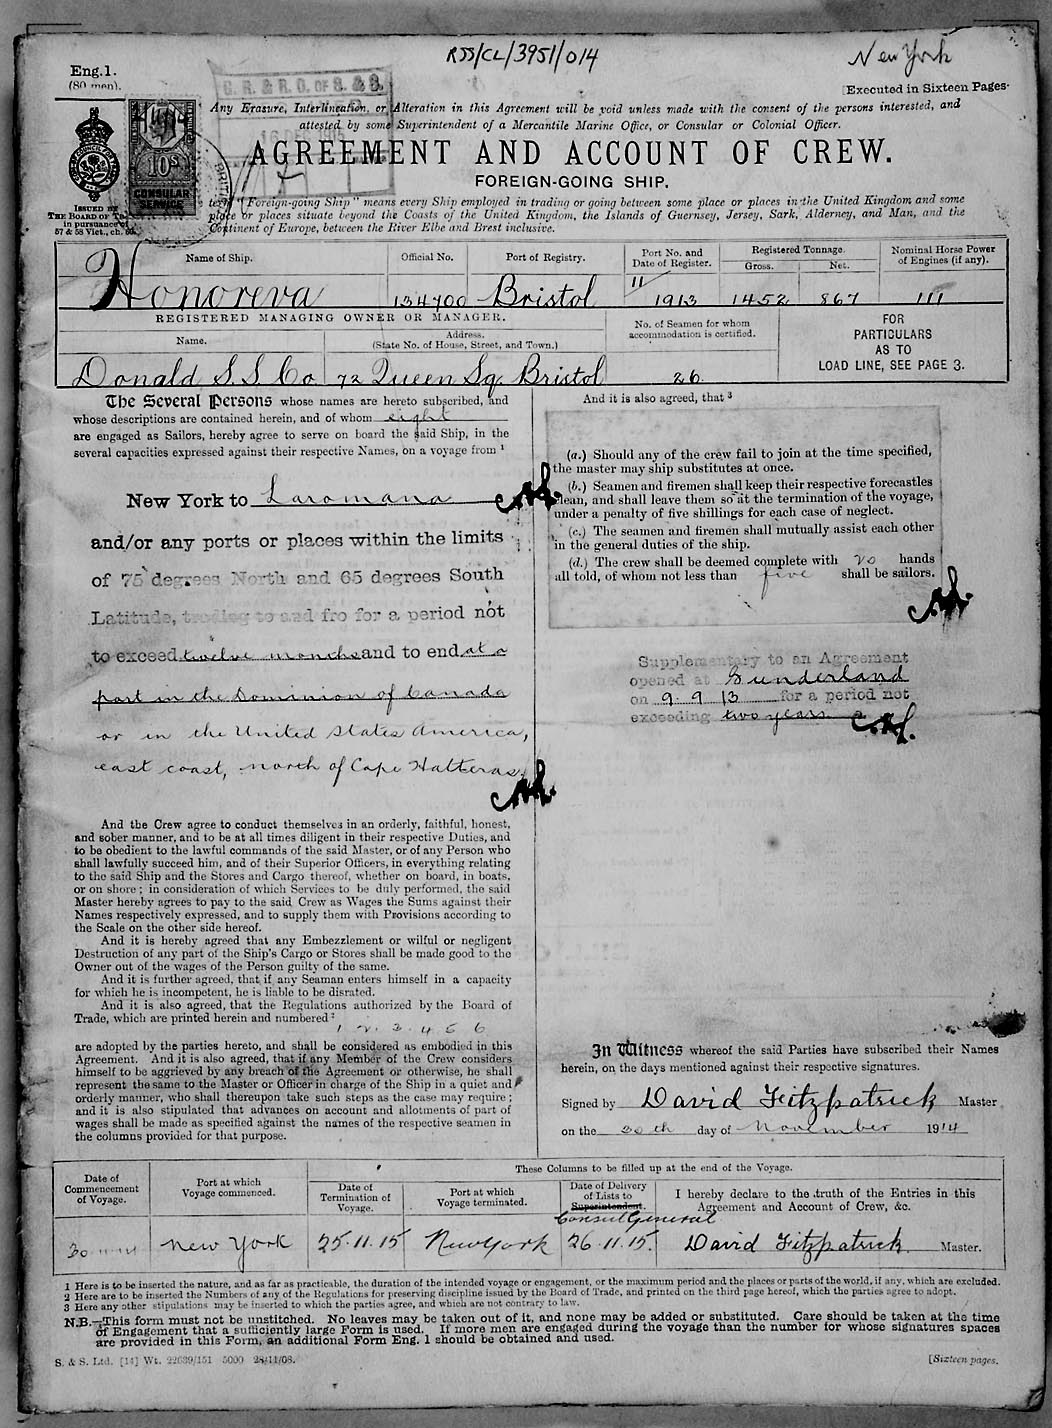 RSS/CL/3951/014
New York
Eng.1.
(80 men).
[Executed in Sixteen Pages.
C. R. & R. O. OF S. & S.
Any Erasure, Interlineation, or Alteration in this Agreement will be void unless made with the consent of the persons interested, and
attested by some Superintendent of a Mercantile Marine Office, or Consular or Colonial Officer.
10s
CONSULAR
SERVICE
AGREEMENT AND ACCOUNT OF CREW.
FOREIGN-GOING SHIP.
ISSUED BY
THE BOARD OF
in pursuance of
57 & 58 Vict., ch. 60.
term "Foreign-going Ship" means every Ship employed in trading or going between some place or places in the United Kingdom and some
place or places situate beyond the Coasts of the United Kingdom, the Islands of Guernsey, Jersey, Sark, Alderney, and Man, and the
Continent of Europe, between the River Elbe and Brest inclusive.
Name of Ship. Official No. Port of Registry. Port No. and Date of Register. Registered Tonnage. Gross. Net. Nominal Horse Power of Engines (if any).
Honoreva 134700 Bristol 11/1913 1452 867 111
REGISTERED MANAGING OWNER OR MANAGER.
Name. Address. (State No. of House, Street, and Town.) No. of Seamen for whom accommodation is certified.
FOR
PARTICULARS
AS TO
LOAD LINE, SEE PAGE 3.
Donald S.S. Co 72 Queen Sq. Bristol 26.
The Several Persons whose names are hereto subscribed, and
whose descriptions are contained herein, and of whom eight
are engaged as Sailors, hereby agree to serve on board the said Ship, in the
several capacities expressed against their respective Names, on a voyage from 1
New York to Laromana
and/or any ports or places within the limits
of 75 degrees North and 65 degrees South
Latitude, trading to and fro for a period not
to exceed twelve months and to end at a
port in the Dominion of Canada
or in the United States America,
east coast, north of Cape Hatteras.
And the Crew agree to conduct themselves in an orderly, faithful, honest,
and sober manner, and to be at all times diligent in their respective Duties, and
to be obedient to the lawful commands of the said Master, or of any Person who
shall lawfully succeed him, and of their Superior Officers, in everything relating
to the said Ship and the Stores and Cargo thereof, whether on board, in boats,
or on shore; in consideration of which Services to be duly performed, the said
Master hereby agrees to pay to the said Crew as Wages the Sums against their
Names respectively expressed, and to supply them with Provisions according to
the Scale on the other side hereof.
And it is hereby agreed that any Embezzlement or wilful or negligent
Destruction of any part of the Ship's Cargo or Stores shall be made good to the
Owner out of the wages of the Person guilty of the same.
And it is further agreed, that if any Seaman enters himself in a capacity
for which he is incompetent, he is liable to be disrated.
And it is also agreed, that the Regulations authorized by the Board of
Trade, which are printed herein and numbered 2
1 2 3 4 5 6
are adopted by the parties hereto, and shall be considered as embodied in this
Agreement. And it is also agreed, that if any Member of the Crew considers
himself to be aggrieved by any breach of the Agreement or otherwise, he shall
represent the same to the Master or Officer in charge of the Ship in a quiet and
orderly manner, who shall thereupon take such steps as the case may require;
and it is also stipulated that advances on account and allotments of part of
wages shall be made as specified against the names of the respective seamen in
the columns provided for that purpose.
And it is also agreed, that 3
(a.) Should any of the crew fail to join at the time specified,
the master may ship substitutes at once.
(b.) Seamen and firemen shall keep their respective forecastles
clean, and shall leave them so at the termination of the voyage,
under a penalty of five shillings for each case of neglect.
(c.) The seamen and firemen shall mutually assist each other
in the general duties of the ship.
(d.) The crew shall be deemed complete with 20 hands
all told, of whom not less than five shall be sailors.
Supplementary to an Agreement
opened at Sunderland
on 9.9.13 for a period not
exceeding two years
In Witness whereof the said Parties have subscribed their Names
herein, on the days mentioned against their respective signatures.
Signed by David Fitzpatrick Master
on the 30th day of November 1914
Date of Commencement of Voyage. Port at which Voyage commenced. These Columns to be filled up at the end of the Voyage.
Date of Termination of Voyage. Port at which Voyage terminated. Date of Delivery of Lists to Superintendent. I hereby declare to the truth of the Entries in this Agreement and Account of Crew, &c.
Consul General
30 11 14 New York 25.11.15 New York 26.11.15. David Fitzpatrick Master.
1 Here is to be inserted the nature, and as far as practicable, the duration of the intended voyage or engagement, or the maximum period and the places or parts of the world, if any, which are excluded.
2 Here are to be inserted the Numbers of any of the Regulations for preserving discipline issued by the Board of Trade, and printed on the third page hereof, which the parties agree to adopt.
3 Here any other stipulations may be inserted to which the parties agree, and which are not contrary to law.
N.B.—This form must not be unstitched. No leaves may be taken out of it, and none may be added or substituted. Care should be taken at the time
of Engagement that a sufficiently large Form is used. If more men are engaged during the voyage than the number for whose signatures spaces
are provided in this Form, an additional Form Eng. 1 should be obtained and used.
S. & S. Ltd. [14] Wt. 22639/151 5000 28/11/08.
[Sixteen pages.